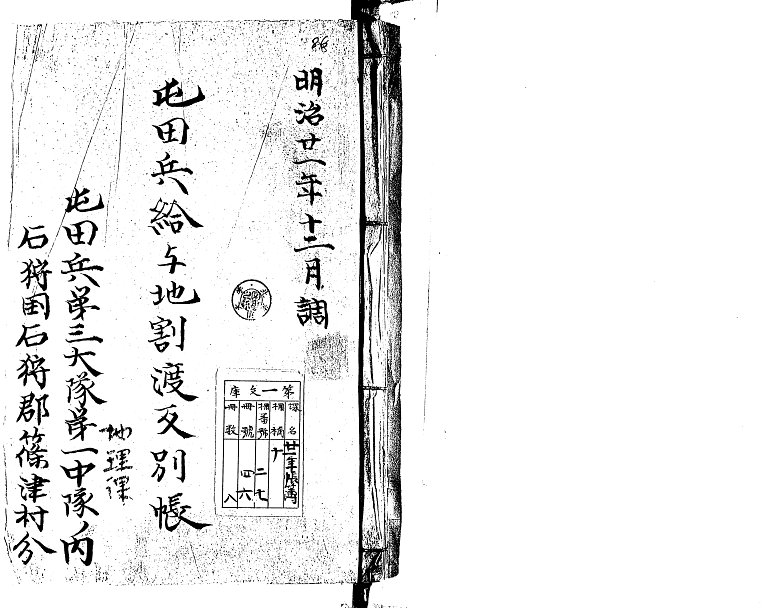 86
明治廿一年十二月調
屯田兵給与地割渡反別帳
屯田兵第三大隊第一中隊ノ内
石狩国石狩郡篠津村分
地理課
第一文庫
塚名
廿一年帳簿
棚
棚番号
二七
冊號
四六
冊数
八